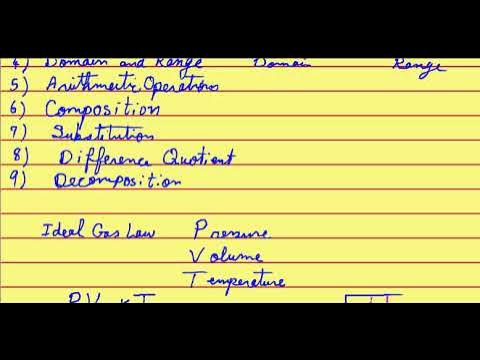 4) Domain and Range Domain Range
5) Arithmetic Operations
6) Composition
7) Substitution
8) Difference Quotient
9) Decomposition
Ideal Gas Law Pressure
Volume
Temperature